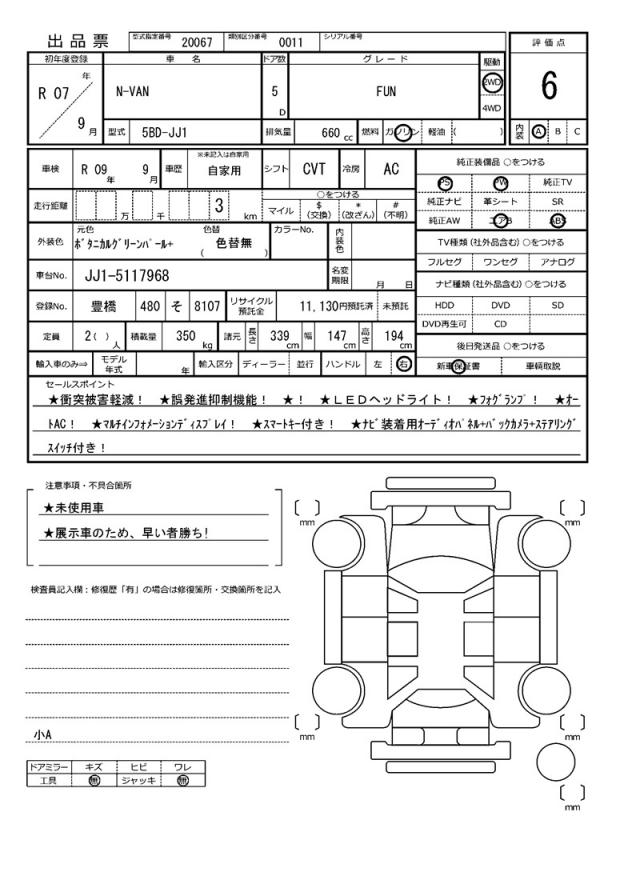 出品票 型式指定番号 20067 類別区分番号 0011 シリアル番号
評価点
6
内装 A B C
初年度登録 車名 ドア数 グレード 駆動
R 07 年 9 月 N-VAN 5 D FUN 2WD 4WD
型式 5BD-JJ1 排気量 660 cc 燃料 ガソリン 軽油 ( )
車検 R 09 年 9 月 車歴 ※未記入は自家用 自家用 シフト CVT 冷房 AC
走行距離 万 千 3 km ○をつける
マイル $(交換) *(改ざん) #(不明)
外装色 元色 ﾎﾞﾀﾆｶﾙｸﾞﾘｰﾝﾊﾟｰﾙ+ 色替 ( 色替無 ) カラーNo. 内装色
車台No. JJ1-5117968 名変期限 月 日
登録No. 豊橋 480 そ 8107 リサイクル預託金 11,130円預託済 未預託
定員 2( ) 人 積載量 350 kg 諸元 長さ 339 cm 幅 147 cm 高さ 194 cm
輸入車のみ⇨ モデル年式 年 輸入区分 ディーラー 並行 ハンドル 左 右
純正装備品 ○をつける
PS PW 純正TV
純正ナビ 革シート SR
純正AW エアB ABS
TV種類 (社外品含む) ○をつける
フルセグ ワンセグ アナログ
ナビ種類 (社外品含む) ○をつける
HDD DVD SD
DVD再生可 CD
後日発送品 ○をつける
新車保証書 車輌取説
セールスポイント
★衝突被害軽減！ ★誤発進抑制機能！ ★！ ★ＬＥＤヘッドライト！ ★ﾌｫｸﾞﾗﾝﾌﾟ！ ★ｵｰ
ﾄAC！ ★ﾏﾙﾁｲﾝﾌｫﾒｰｼｮﾝﾃﾞｨｽﾌﾟﾚｲ！ ★ｽﾏｰﾄｷｰ付き！ ★ﾅﾋﾞ装着用ｵｰﾃﾞｨｵﾊﾟﾈﾙ+ﾊﾞｯｸｶﾒﾗ+ｽﾃｱﾘﾝｸﾞ
ｽｲｯﾁ付き！
注意事項・不具合箇所
★未使用車
★展示車のため、早い者勝ち!
検査員記入欄：修復歴「有」の場合は修復箇所・交換箇所を記入
小A
ドアミラー キズ ヒビ ワレ
工具 無 ジャッキ 無
mm
mm
mm
mm
mm